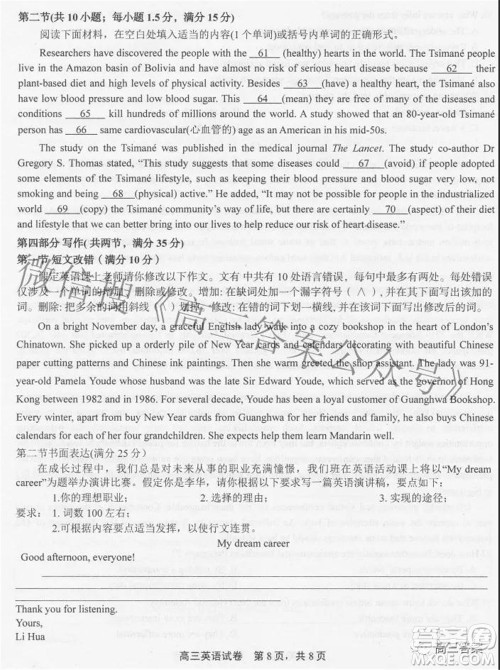 第二节(共 10 小题；每小题 1.5 分，满分 15 分)
阅读下面材料，在空白处填入适当的内容(1 个单词)或括号内单词的正确形式。
Researchers have discovered the people with the 61 (healthy) hearts in the world. The Tsimané people
live in the Amazon basin of Bolivia and have almost no risk of serious heart disease because 62 their
plant-based diet and high levels of physical activity. Besides 63 (have) a healthy heart, the Tsimané also
have low blood pressure and low blood sugar. This 64 (mean) they are free of many of the diseases and
conditions 65 kill hundreds of millions around the world. A study showed that an 80-year-old Tsimané
person has 66 same cardiovascular(心血管的) age as an American in his mid-50s.
The study on the Tsimané was published in the medical journal The Lancet. The study co-author Dr
Gregory S. Thomas stated, “This study suggests that some diseases could 67 (avoid) if people adopted
some elements of the Tsimané lifestyle, such as keeping their blood pressure and blood sugar very low, not
smoking and being 68 (physical) active.” He added, “It may not be possible for people in the industrialized
world 69 (copy) the Tsimané community’s way of life, but there are certainly 70 (aspect) of their diet
and lifestyle that we can better bring into our lives to help reduce our risk of heart disease.”
第四部分 写作(共两节，满分 35 分)
第一节 短文改错（满分 10 分）
假定英语课上老师请你修改以下作文。文有 中共有 10 处语言错误，每句中最多有两处。每处错误
仅涉及一个单词的增加、删除或修改。增加: 在缺词处加一个漏字符号（∧），并在其下面写出该加的
词。删除: 把多余的词用斜线（＼）划掉。修改: 在错的词下划一横线，并在该词下面写出修改后的词。
On a bright November day, a graceful English lady walk into a cozy bookshop in the heart of London’s
Chinatown. She picked up a orderly pile of New Year cards and calendars decorating with beautiful Chinese
paper cuttings and Chinese ink paintings. Then she warm greeted the shop assistant. The lady was 91-
year-old Pamela Youde whose husband was the late Sir Edward Youde, which served as the governor of Hong
Kong between 1982 and in 1986. For several decade, Youde has been a loyal customer of Guanghwa Bookshop.
Every winter, apart from buy New Year cards from Guanghwa for her friends and family, he also buys Chinese
calendars for each of her four grandchildren. She expects help them learn Mandarin well.
第二节书面表达(满分 25 分)
在成长过程中，我们总是对未来从事的职业充满憧憬，我们班在英语活动课上将以“My dream
career”为题举办演讲比赛。假定你是李华，请你根据以下要求写一篇英语演讲稿，要点如下：
1.你的理想职业； 2.选择的理由； 3.实现的途径。
要求： 1. 词数 100 左右；
2.可根据内容要点适当发挥，以使行文连贯。
My dream career
Good afternoon, everyone!
Thank you for listening.
Yours,
Li Hua
高三英语试卷 第 8 页，共 8 页
高三答案